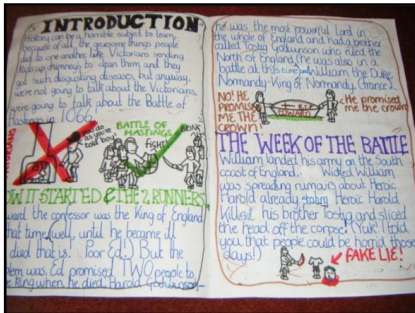 INTRODUCTION
History can be a horrible subject to learn,
because of all the gruesome things people
did to one another like Victorians sending
kids up chimneys to clean them and they
got such disgusting diseases, but anyway,
we're not going to talk about the Victorians,
we're going to talk about the Battle of
Hastings in 1066.
do as
you're
told boy!
BATTLE OF
HASTINGS
OW IT STARTED & THE 2 RUNNERS
ward the confessor was the King of England
that time, well, until he became ill
died that is. Poor Ed.) But the
em was Ed promised TWO people to
e King when he died. Harold Godwinson,-
he was the most powerful Lord in
the whole of England and had a brother
called Tostig Godwinson who ruled the
North of England (he was also in a
battle at this time) and William the Duke,
Normandy-King of Normandy, (France).
NO! HE
PROMISED
ME THE
CROWN!
He promised
me the crown!
THE WEEK OF THE BATTLE
William landed his army on the South
coast of England. Wicked William
was spreading rumours about Heroic
Harold already stating Heroic Harold
killed his brother Tostig and sliced
the head off the corpse! (Yuk! I told
you that people could be horrid those
days!)
FAKE LIE!